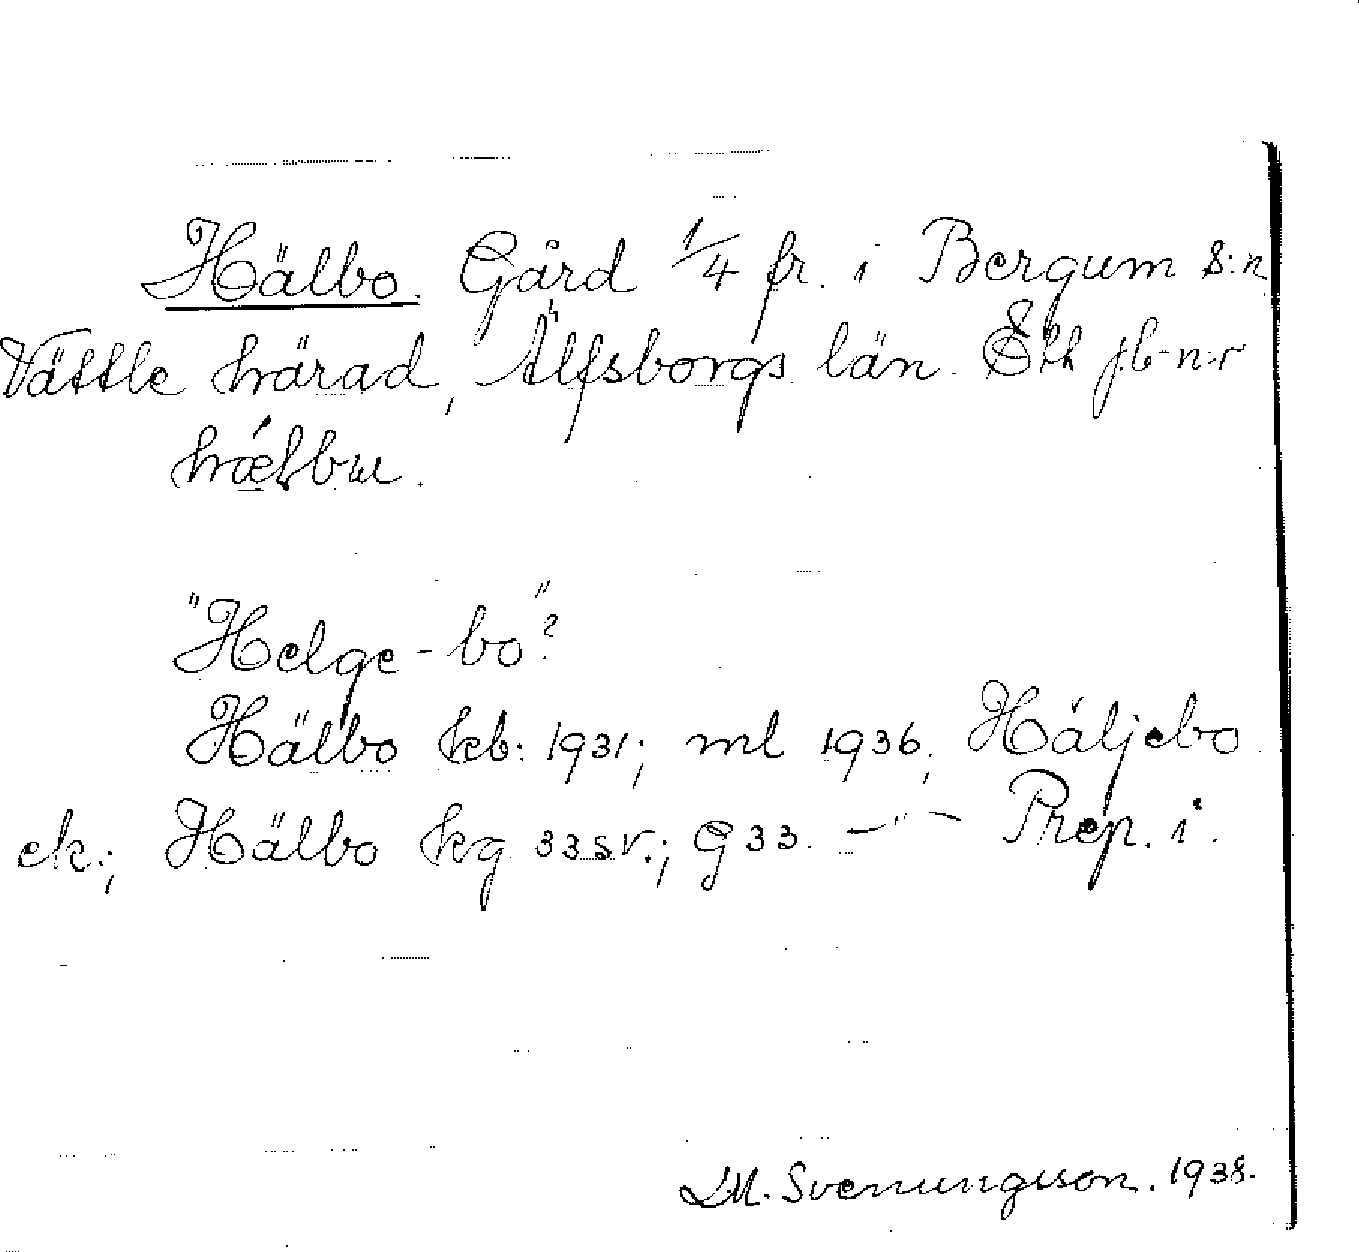 Hälbo. Gård 1/4 fr. i Bergum s:n
Vättle härad, Älfsborgs län. Ekh jb-n-r
"Helge-bo"?
Hälbo kb: 1931; ml 1936; Häljebo
ek.; Hälbo kg 33 sv.; G 33. —"— Prep. i.
LM. Svenungsson. 1938.